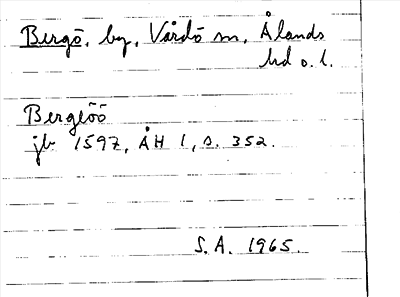 Bergö, by, Vårdö sn, Ålands
hd o. l.
Bergeöö
jb 1597, ÅH 1, s. 352.
S. A. 1965.